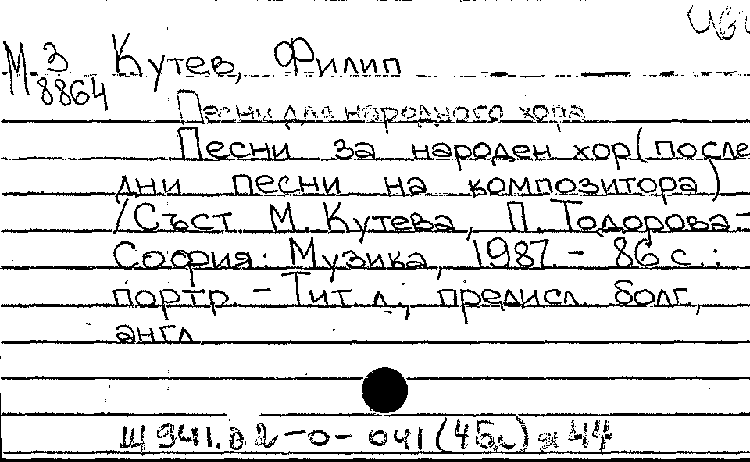 М-3 Кутев, Филип
8864
Песни для народного хора
Песни за народен хор (после
дни песни на композитора)
/Съст М. Кутева, П. Тодорова -
София: Музика, 1987. - 86 с.:
портр. - Тит. л., предисл. болг.,
англ
Щ 941.